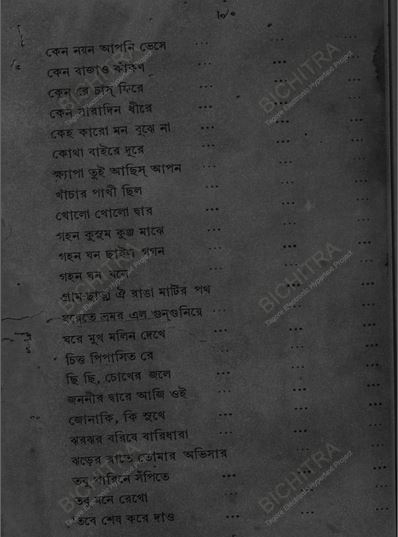 কেন নয়ন আপনি ভেসে ... ... ...
কেন বাজাও কাঁকণ ... ... ...
কেন রে চাস্ ফিরে ... ... ...
কেন সারাদিন ধীরে ... ... ...
কেহ কারো মন বুঝে না ... ... ...
কোথা বাইরে দূরে ... ... ...
ক্ষ্যাপা তুই আছিস্ আপন ... ... ...
খাঁচার পাখী ছিল ... ... ...
খোলো খোলো দ্বার ... ... ...
গহন কুসুম কুঞ্জ মাঝে ... ... ...
গহন ঘন ছাইল গগন ... ... ...
গহন ঘন বনে ... ... ...
গ্রাম-ছাড়া ঐ রাঙা মাটির পথ ... ... ...
ঘরেতে ভ্রমর এল গুন্‌গুনিয়ে ... ... ...
ঘরে মুখ মলিন দেখে ... ... ...
চিত্ত পিপাসিত রে ... ... ...
ছি ছি, চোখের জলে ... ... ...
জননীর দ্বারে আজি ওই ... ... ...
জোনাকি, কি সুখে ... ... ...
ঝরঝর বরিষে বারিধারা ... ... ...
ঝড়ের রাতে তোমার অভিসার ... ... ...
তবু পারিনে সঁপিতে ... ... ...
তবু মনে রেখো ... ... ...
তবে শেষ করে দাও ... ... ...
BICHITRA
Tagore Electronic Variorum Project
BICHITRA
BICHITRA
BICHITRA
BICHITRA
BICHITRA